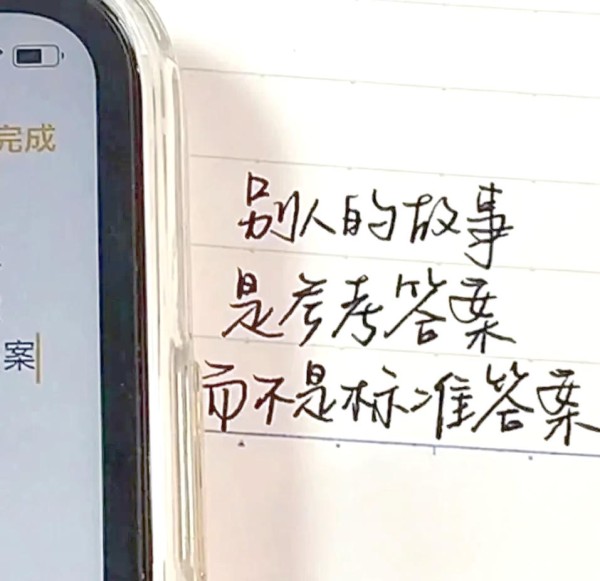 完成
案
别人的故事
是参考答案
而不是标准答案